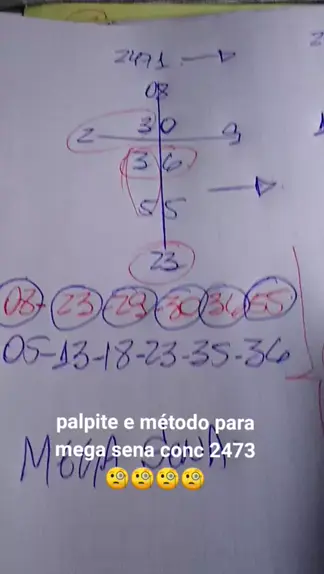 2471
08
30
2 9
36
55
23
03-23-29-30-36-55
05-13-18-23-35-36
palpite e método para
mega sena conc 2473
🧐🧐🧐🧐
MEGA SENA